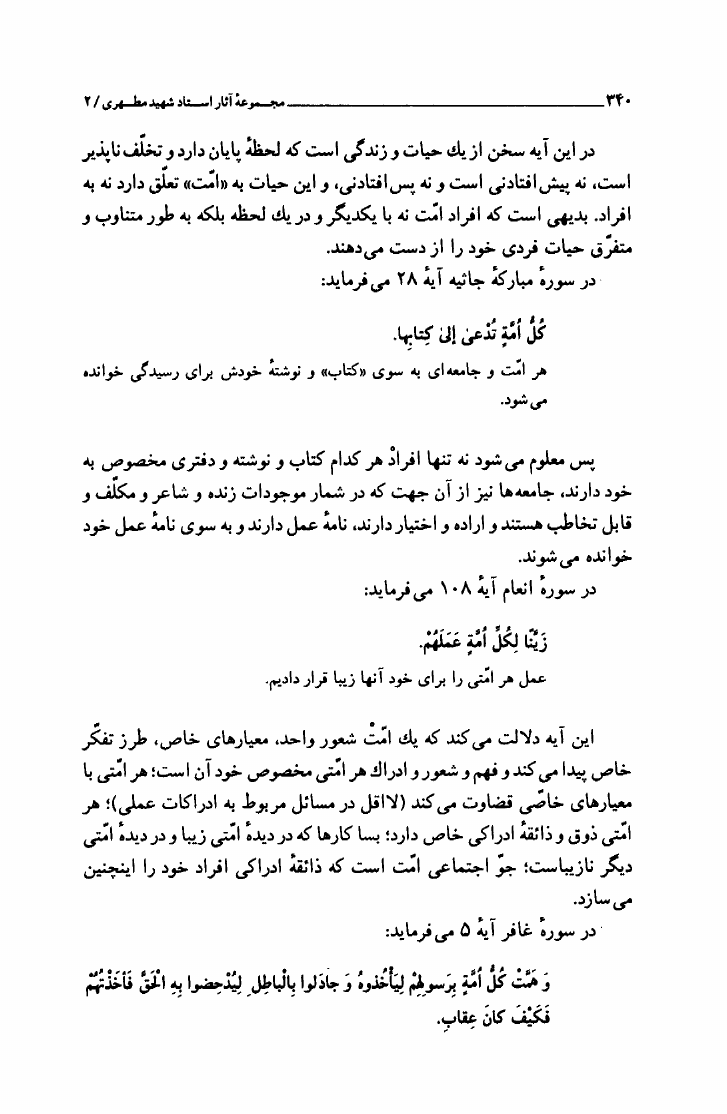 ۳۴۰ مجموعهٔ آثار استاد شهید مطهری / ۲
در این آیه سخن از یك حیات و زندگی است که لحظهٔ پایان دارد و تخلّف ناپذیر
است، نه پیش افتادنی است و نه پس افتادنی، و این حیات به «امّت» تعلّق دارد نه به
افراد. بدیهی است که افراد امّت نه با یکدیگر و در یك لحظه بلکه به طور متناوب و
متفرّق حیات فردی خود را از دست می‌دهند.
در سورهٔ مبارکهٔ جاثیه آیهٔ ۲۸ می‌فرماید:
کُلُّ اُمَّةٍ تُدْعیٰ اِلیٰ کِتابِها.
هر امّت و جامعه‌ای به سوی «کتاب» و نوشتهٔ خودش برای رسیدگی خوانده
می‌شود.
پس معلوم می‌شود نه تنها افرادْ هر کدام کتاب و نوشته و دفتری مخصوص به
خود دارند، جامعه‌ها نیز از آن جهت که در شمار موجودات زنده و شاعر و مکلّف و
قابل تخاطب هستند و اراده و اختیار دارند، نامهٔ عمل دارند و به سوی نامهٔ عمل خود
خوانده می‌شوند.
در سورهٔ انعام آیهٔ ۱۰۸ می‌فرماید:
زَیَّنّا لِکُلِّ اُمَّةٍ عَمَلَهُمْ.
عمل هر امّتی را برای خود آنها زیبا قرار دادیم.
این آیه دلالت می‌کند که یك امّتْ شعور واحد، معیارهای خاص، طرز تفکّر
خاص پیدا می‌کند و فهم و شعور و ادراك هر امّتی مخصوص خود آن است؛ هر امّتی با
معیارهای خاصّی قضاوت می‌کند (لااقل در مسائل مربوط به ادراکات عملی)؛ هر
امّتی ذوق و ذائقهٔ ادراکی خاص دارد؛ بسا کارها که در دیدهٔ امّتی زیبا و در دیدهٔ امّتی
دیگر نازیباست؛ جوّ اجتماعی امّت است که ذائقهٔ ادراکی افراد خود را اینچنین
می‌سازد.
در سورهٔ غافر آیهٔ ۵ می‌فرماید:
وَ هَمَّتْ کُلُّ اُمَّةٍ بِرَسولِهِمْ لِیَأْخُذوهُ وَ جادَلوا بِالْباطِلِ لِیُدْحِضوا بِهِ الْحَقَّ فَاَخَذْتُهُمْ
فَکَیْفَ کانَ عِقابِ.